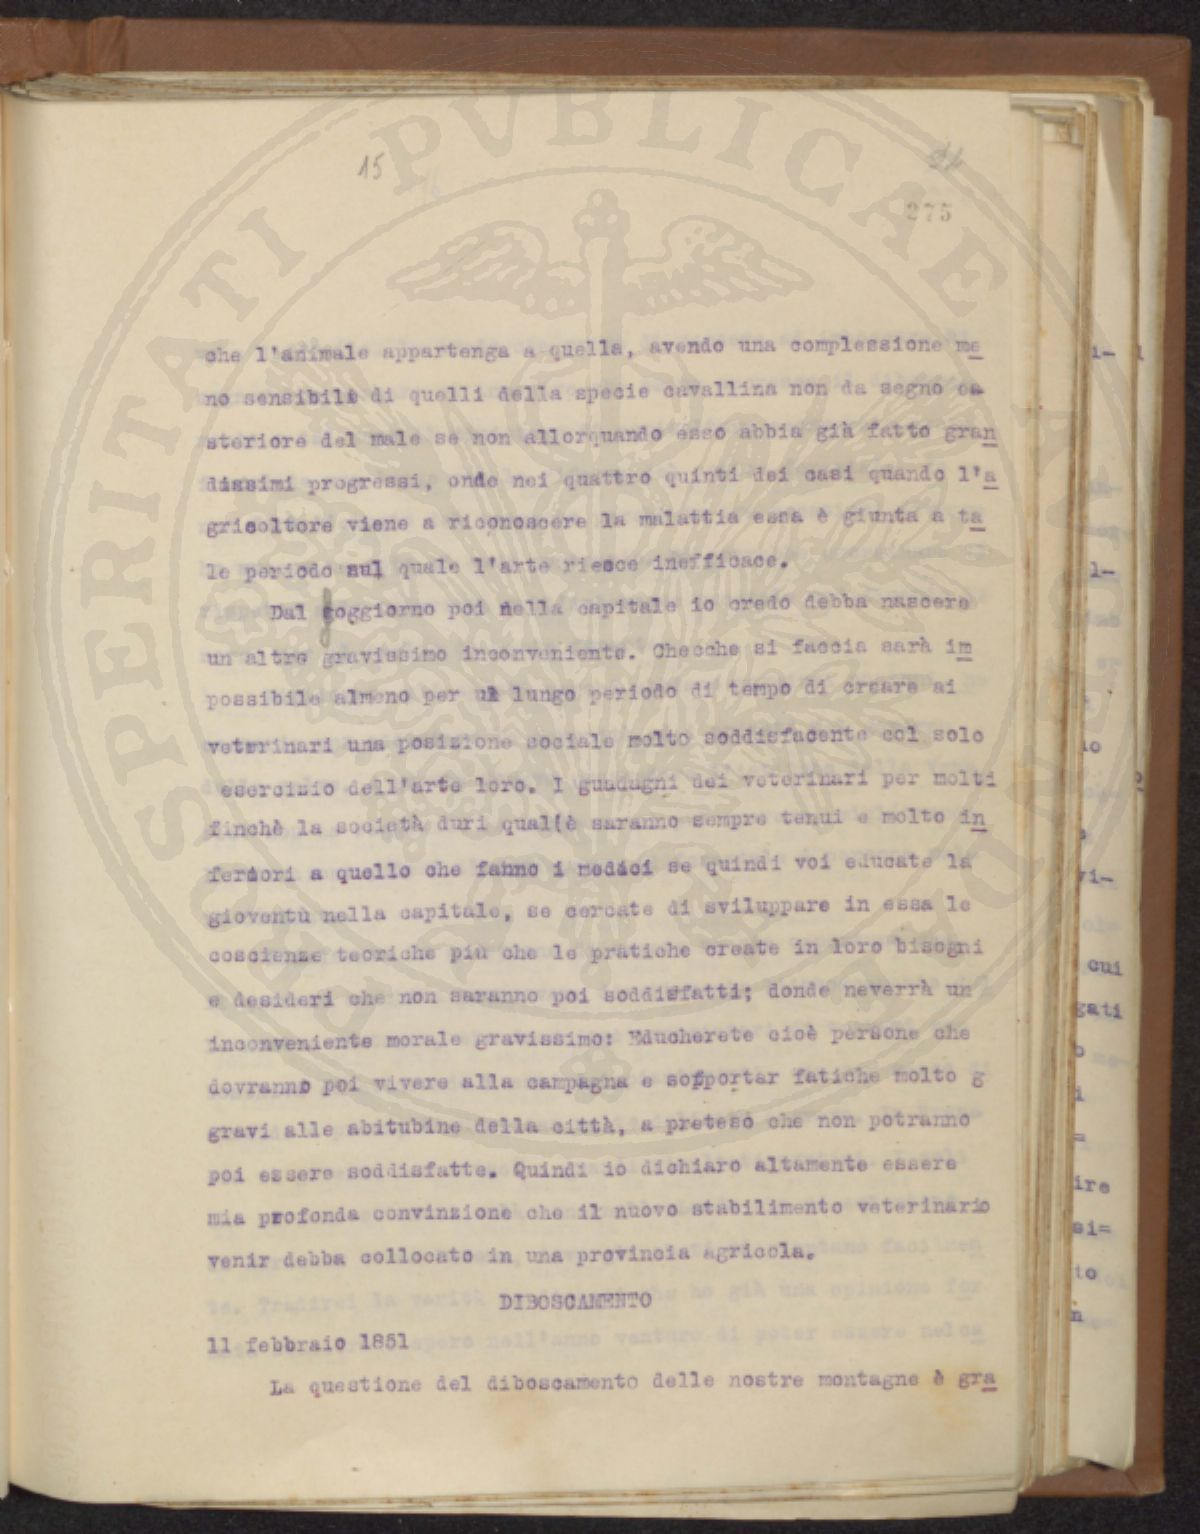 15
275
che l'animale appartenga a quella, avendo una complessione me
no sensibile di quelli della specie cavallina non da segno es
steriore del male se non allorquando esso abbia già fatto gran
dissimi progressi, onde nei quattro quinti dei casi quando l'a
gricoltore viene a riconoscere la malattia essa è giunta a ta
le periodo sul quale l'arte riesce inefficace.
Dal soggiorno poi nella capitale io credo debba nascere
un altro gravissimo inconveniente. Checche si faccia sarà im
possibile almeno per un lungo periodo di tempo di creare ai
veterinari una posizione sociale molto soddisfacente col solo
esercizio dell'arte loro. I guadagni dei veterinari per molti
finchè la società duri qual(è saranno sempre tenui e molto in
feriori a quello che fanno i medici se quindi voi educate la
gioventù nella capitale, se cercate di sviluppare in essa le
coscienze teoriche più che le pratiche create in loro bisogni
e desideri che non saranno poi soddisfatti; donde neverrà un
inconveniente morale gravissimo: Educherete cioè persone che
dovranno poi vivere alla campagna e sopportar fatiche molto g
gravi alle abitubine della città, a preteso che non potranno
poi essere soddisfatte. Quindi io dichiaro altamente essere
mia profonda convinzione che il nuovo stabilimento veterinario
venir debba collocato in una provincia agricola.
DIBOSCAMENTO
11 febbraio 1851
La questione del diboscamento delle nostre montagne è gra